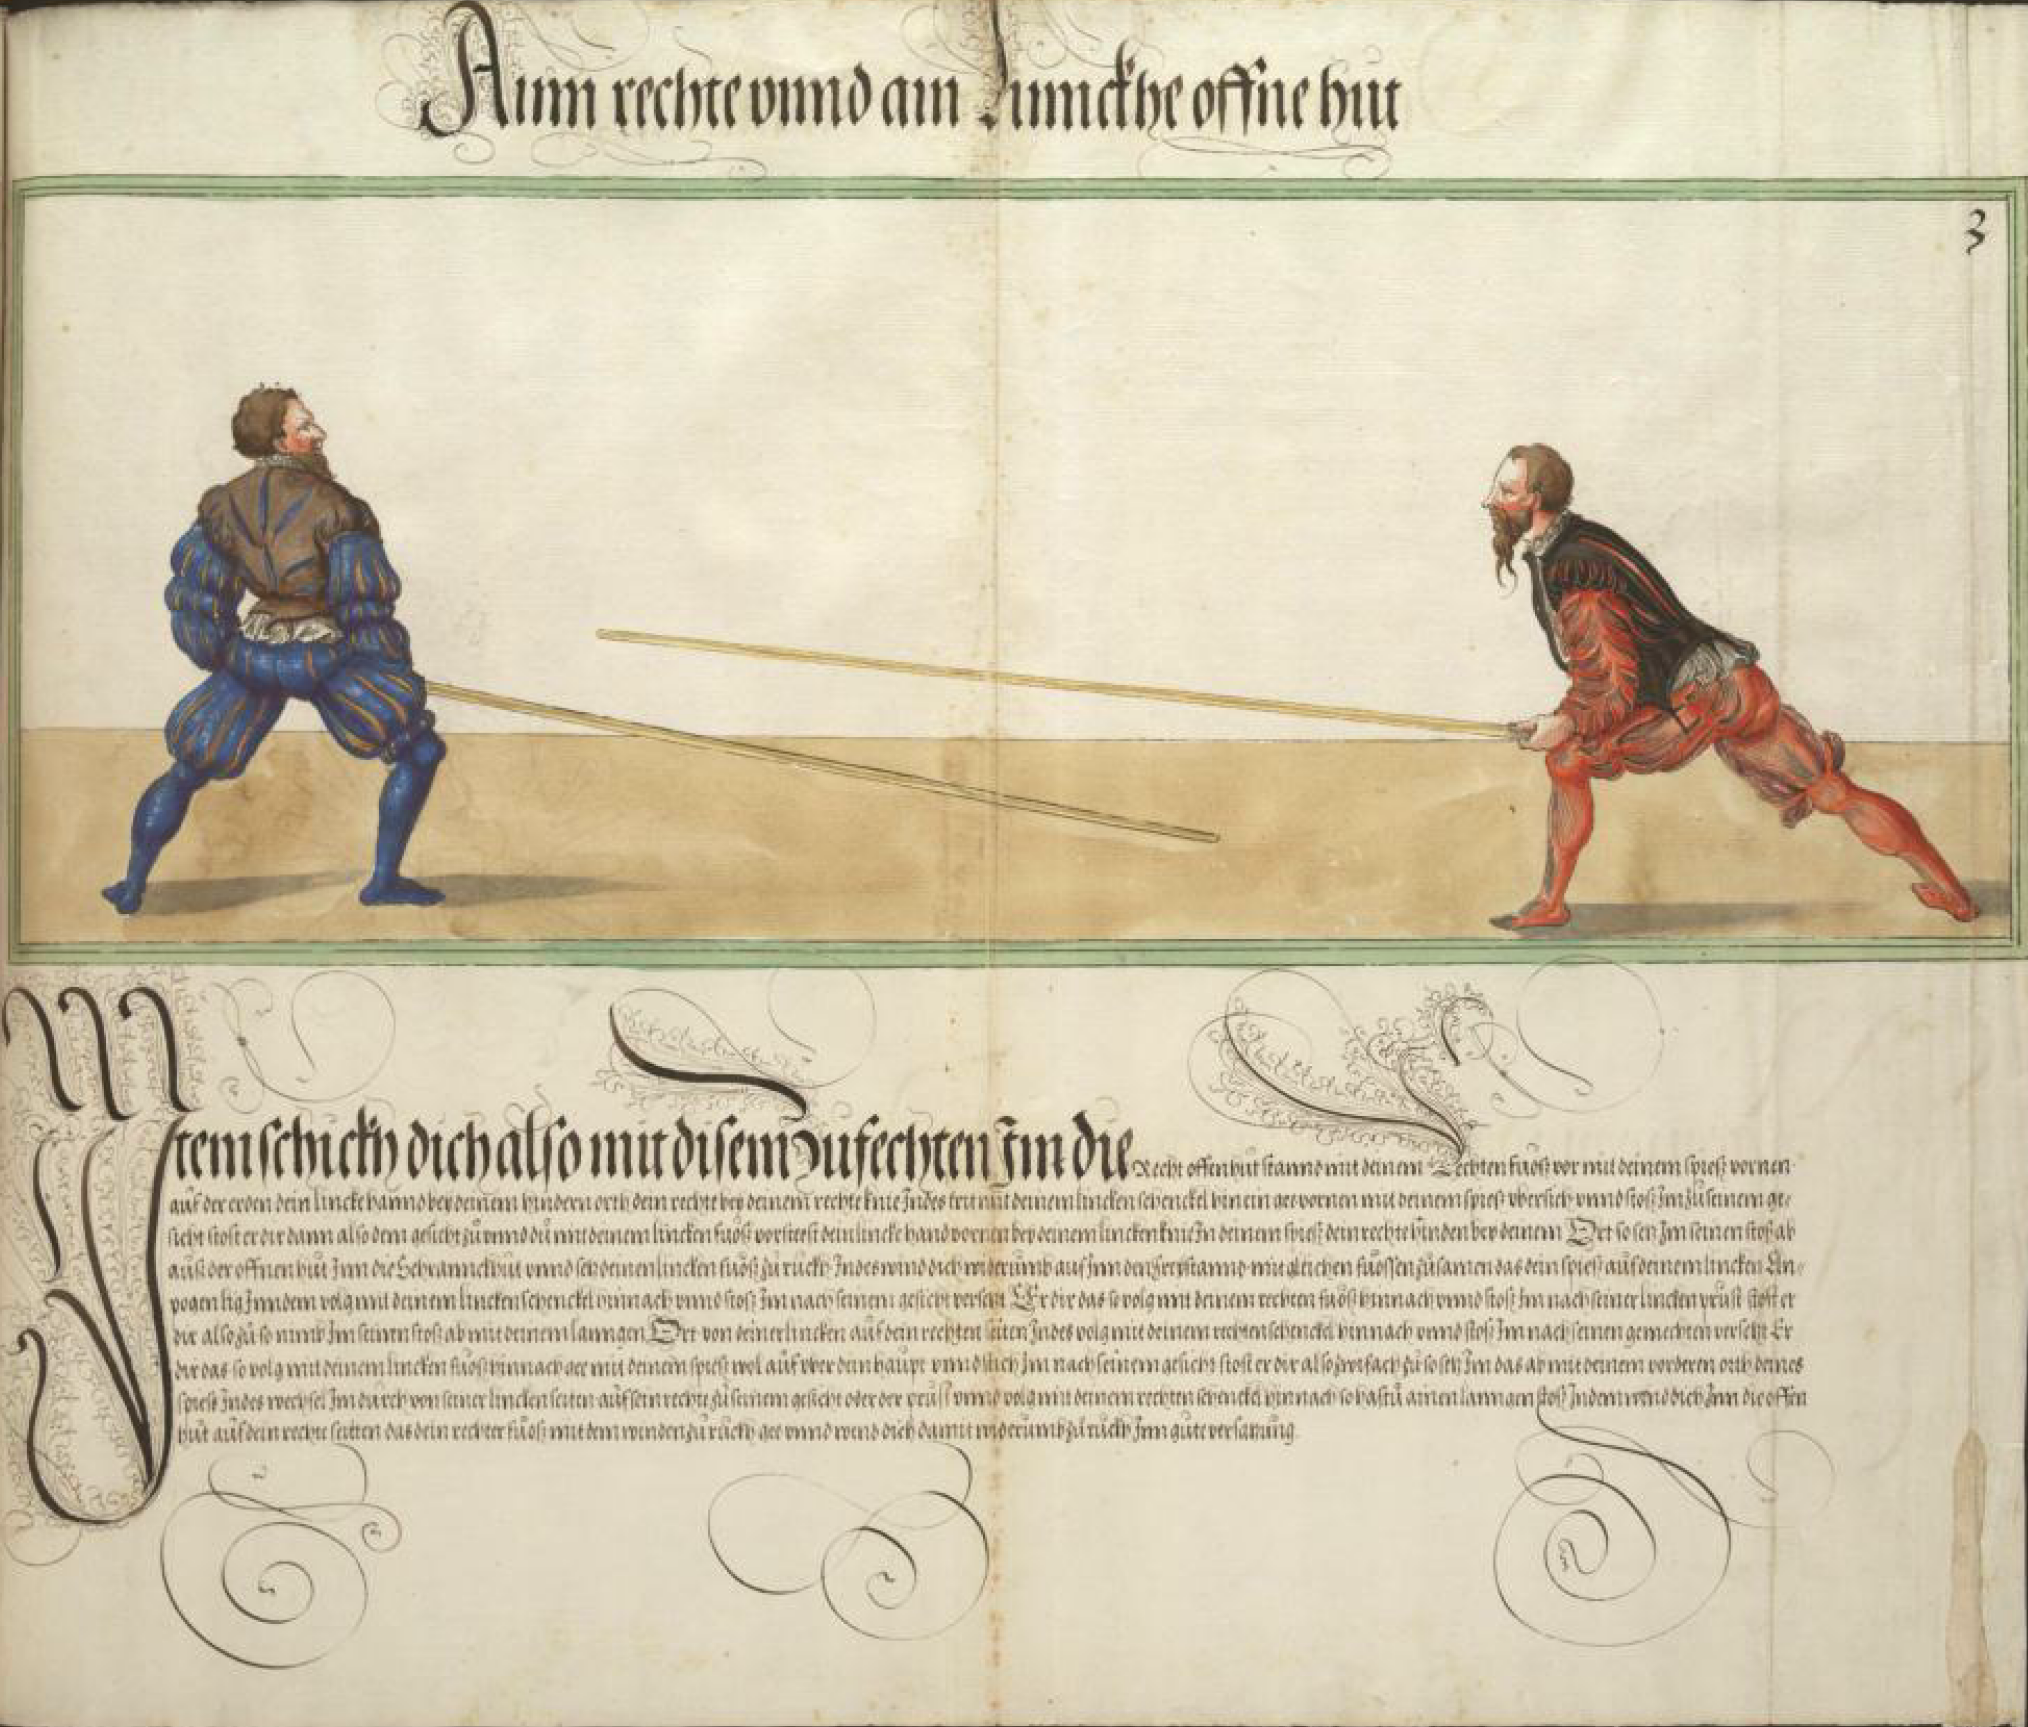 Ainn rechte unnd ain Linnckhe offne hut
3
Item schickh dich also mit disem Zufechten Inn die Recht offen hut stannd mit deinem Rechten fuoß vor mit deinem spieß vornen
auf der erden dein lincke hannd bey deinem hindern orth dein rechte bey deinem rechte knie Indes trit mit deinem lincken schenckel hinein gee vornen mit deinem spieß ubersich unnd stoß Im zu seinem ge-
sicht stost er dir dann also dem gesicht zu unnd du mit deinem lincken fuoß vorsteest dein linck hand vornen bey deinem lincken knie In deinem spieß dein rechte hinden bey deinem Ort so setz Im seinen stoß ab
auß der offnen hut Inn die Schranckhut unnd setz deinen lincken fuoß zu ruckh Indes wind dich widerumb auf Inn den freystannd mit gleichen fuossen zusamen das dein spieß auf deinem lincken Ein-
pogen lig Inn dem volg mit deinem lincken schenckel hinnach unnd stoß Im nach seinem gesicht versetzt Er dir das so volg mit deinem rechten fuoß hinnach unnd stoß Im nach seiner lincken prust stost er
dir also zu so nimb Im seinen stoß ab mit deinem lanngen Ort von deiner lincken auf dein rechten seiten Indes volg mit deinem rechten schenckel hinnach unnd stoß Im nach seinen gemechten versetzt Er
dir das so volg mit deinem lincken fuoß hinnach gee mit deinem spieß wol auf uber dein haupt unnd stich Im nach seinem gesicht stost er dir also zwifach zu so setz Im das ab mit deinem vorderen orth deines
spieß Indes wechsel Im durch von seiner lincken seiten auf sein rechte zu seinem gesicht oder der prust unnd volg mit deinem rechten schenckel hinnach so hastu ainen lanngen stoß Indem wend dich Inn die offen
hut auf dein rechte seitten das dein rechter fuoß mit dem winden zu ruckh gee unnd wend dich damit widerumb zu ruckh Inn gute versatzung